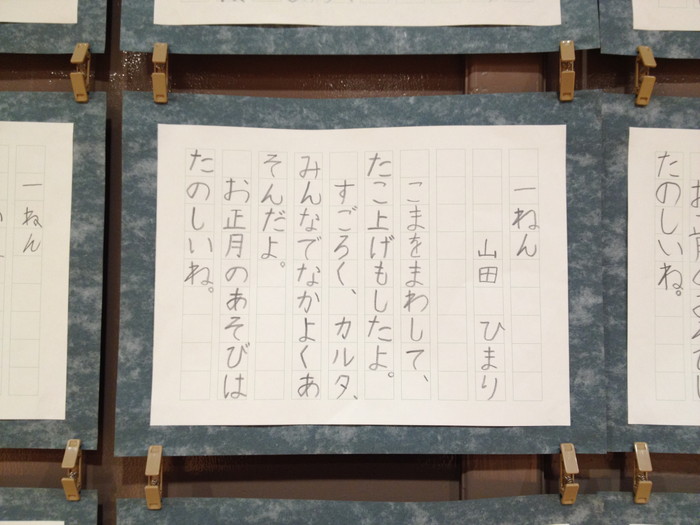 一ねん
山田 ひまり
こまをまわして、
たこ上げもしたよ。
すごろく、カルタ、
みんなでなかよくあ
そんだよ。
お正月のあそびは
たのしいね。
一ねん
たのしいね。